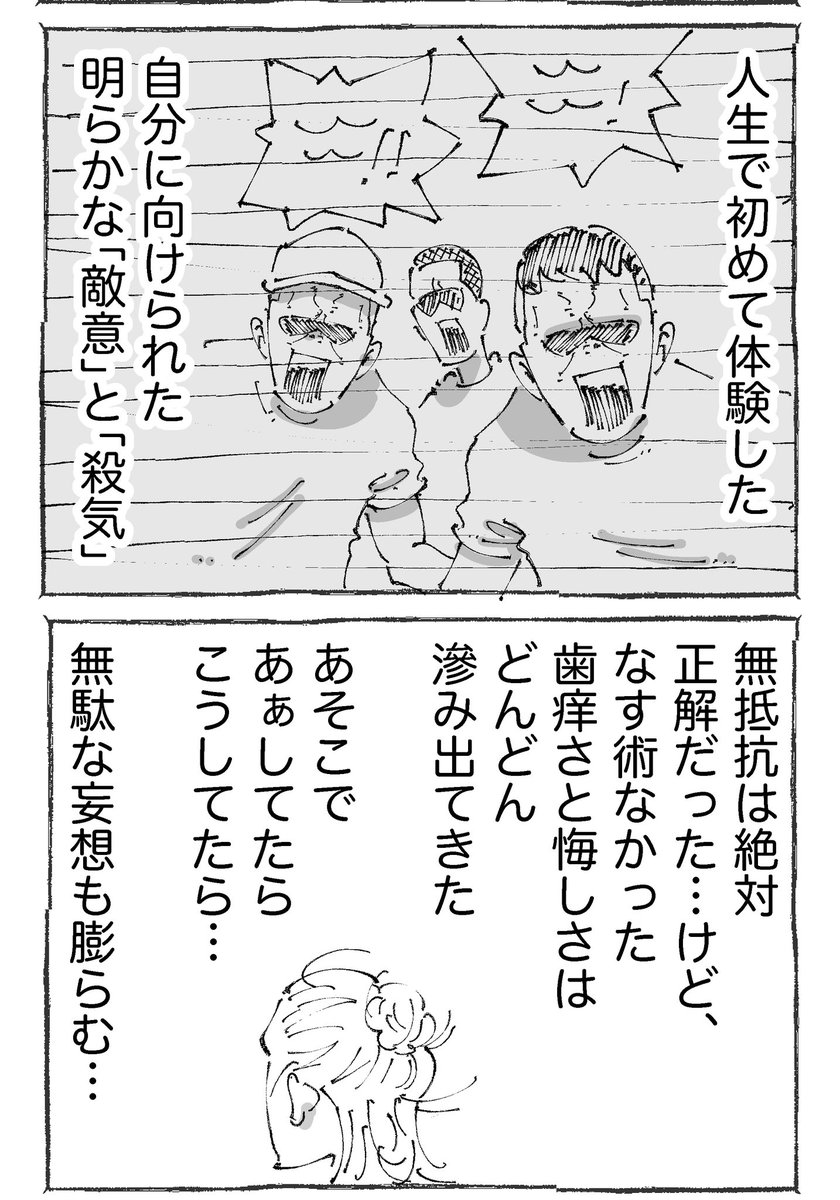 人生で初めて体験した
自分に向けられた
明らかな「敵意」と「殺気」
無抵抗は絶対
正解だった…けど、
なす術なかった
歯痒さと悔しさは
どんどん
滲み出てきた
あそこで
あぁしてたら
こうしてたら…
無駄な妄想も膨らむ…